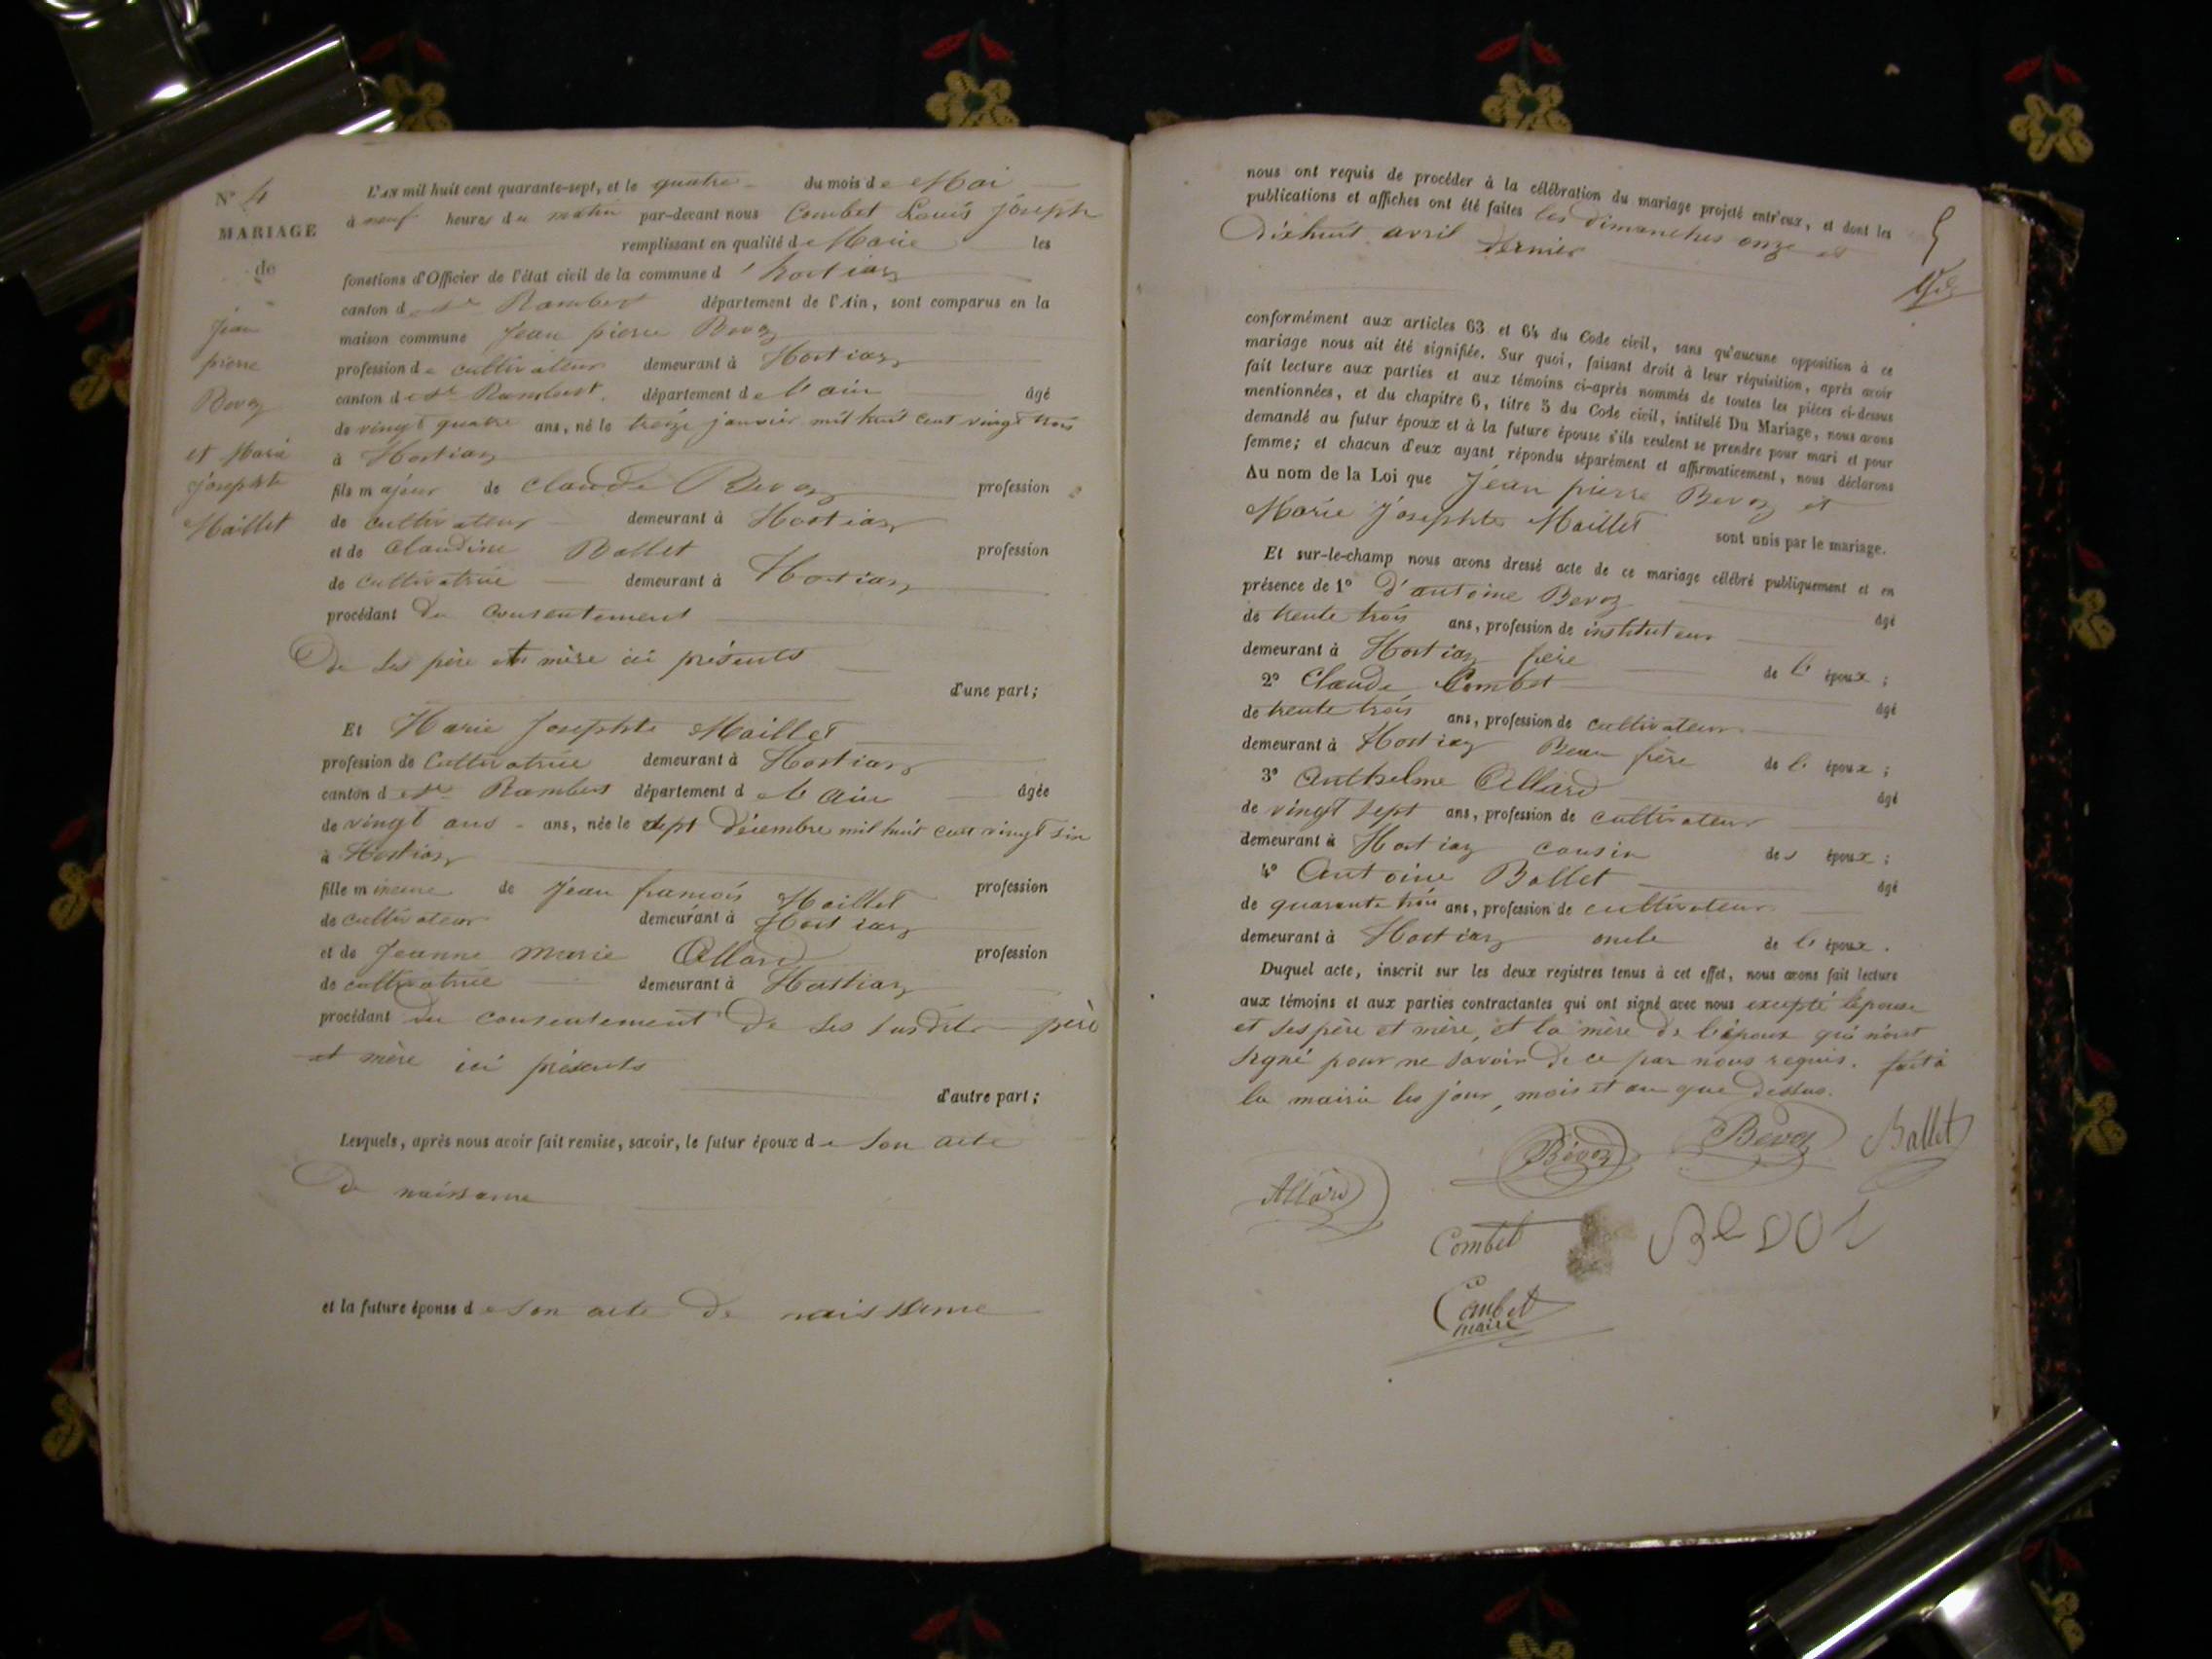 N° 4
MARIAGE
de
Jean
pierre
Bevoz
et Marie
Josephte
Maillet
L'AN mil huit cent quarante-sept, et le quatre du mois de Mai
à neuf heures du matin par-devant nous Combet Louis Joseph
remplissant en qualité de Maire les
fonctions d'Officier de l'état civil de la commune d'hostiaz
canton de St Rambert département de l'Ain, sont comparus en la
maison commune Jean pierre Bevoz
profession de cultivateur demeurant à Hostiaz
canton de St Rambert département de l'ain âgé
de vingt quatre ans, né le treize janvier mil huit cent vingt trois
à Hostiaz
fils majeur de Claude Bevoz profession
de cultivateur demeurant à Hostiaz
et de Claudine Ballet profession
de cultivatrice demeurant à Hostiaz
procédant du consentement
De ses père et mère ici présents
d'une part;
Et Marie Josephte Maillet
profession de Cultivatrice demeurant à Hostiaz
canton de St Rambert département de l'ain âgée
de vingt ans ans, née le sept Décembre mil huit cent vingt six
à Hostiaz
fille mineure de Jean francois Maillet profession
de cultivateur demeurant à Hostiaz
et de Jeanne Marie Allard profession
de cultivatrice demeurant à Hostiaz
procédant du consentement De ses susdits père
et mère ici présents
d'autre part;
Lesquels, après nous avoir fait remise, savoir, le futur époux de son acte
De naissance
et la future épouse de son acte De naissance
nous ont requis de procéder à la célébration du mariage projeté entr'eux, et dont les
publications et affiches ont été faites les dimanches onze et
Dixhuit avril dernier
5
conformément aux articles 63 et 64 du Code civil, sans qu'aucune opposition à ce
mariage nous ait été signifiée. Sur quoi, faisant droit à leur réquisition, après avoir
fait lecture aux parties et aux témoins ci-après nommés de toutes les pièces ci-dessus
mentionnées, et du chapitre 6, titre 5 du Code civil, intitulé Du Mariage, nous avons
demandé au futur époux et à la future épouse s'ils veulent se prendre pour mari et pour
femme; et chacun d'eux ayant répondu séparément et affirmativement, nous déclarons
Au nom de la Loi que Jean pierre Bevoz et
Marie Josephte Maillet sont unis par le mariage.
Et sur-le-champ nous avons dressé acte de ce mariage célébré publiquement et en
présence de 1° D'antoine Bevoz âgé
de trente trois ans, profession de instituteur
demeurant à Hostiaz frère de l'époux;
2° Claude Combet âgé
de trente trois ans, profession de cultivateur
demeurant à Hostiaz Beau frère de l'époux;
3° Anthelme Allard âgé
de vingt sept ans, profession de cultivateur
demeurant à Hostiaz cousin des époux;
4° Antoine Ballet âgé
de quarante trois ans, profession de cultivateur
demeurant à Hostiaz oncle de l'époux.
Duquel acte, inscrit sur les deux registres tenus à cet effet, nous avons fait lecture
aux témoins et aux parties contractantes qui ont signé avec nous excepté l'épouse
et ses père et mère, et la mère de l'époux qui n'ont
signé pour ne savoir De ce par nous requis. fait à
la mairie les jour, mois et an que dessus.
Bevoz Bevoz Ballet
Allard
Combet Bevoz
Combet
maire